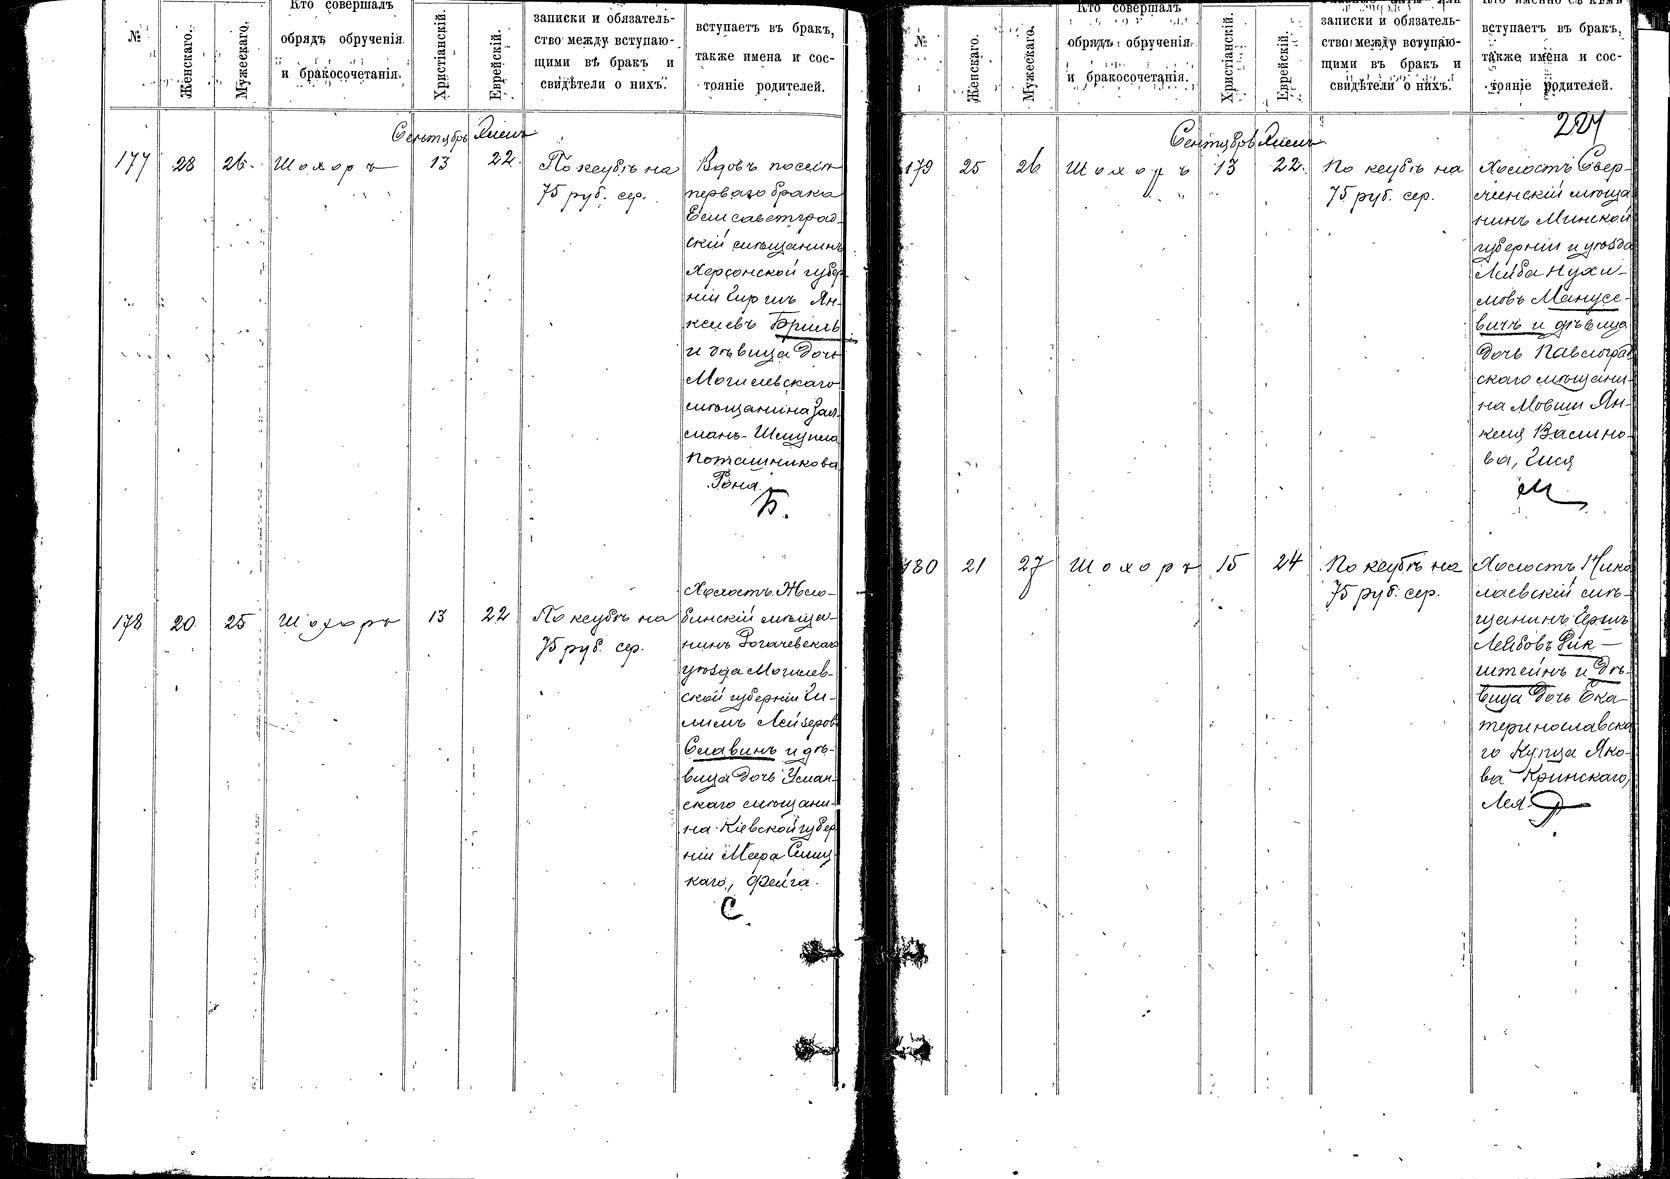 №
Женскаго.
Мужескаго.
Кто совершалъ
обрядъ обрученія
и бракосочетанія.
Христіанскій.
Еврейскій.
записки и обязатель-
ство между вступаю-
щими въ бракъ и
свидѣтели о нихъ.
вступаетъ въ бракъ,
также имена и сос-
тояніе родителей.
Сентябрь
177 28 26. Шохоръ 13 22.
По кеубѣ на
75 руб. сер.
Вдовъ послѣ
перваго брака
Елисаветград-
скій мѣщанинъ
Херсонской губер
ніи Гиршъ Ян-
келевъ Бриль
и дѣвица дочь
Могилевскаго
мѣщанина Зал-
манъ-Шмуила
Поташникова
Роня.
Б.
178 20 25 Шохоръ 13 22
По кеубѣ на
75 руб. сер.
Холостъ Жло-
бинскій мѣща-
нинъ Рогачевскаго
уѣзда Могилев-
ской губерніи
Лейзеровъ
Славинъ и дѣ-
вица дочь Уман-
скаго мѣщани-
на Кіевской губер
ніи Меера
каго, Фейга.
С
№
Женскаго.
Мужескаго.
Кто совершалъ
обрядъ обрученія
и бракосочетанія.
Христіанскій.
Еврейскій.
записки и обязатель-
ство между вступаю-
щими въ бракъ и
свидѣтели о нихъ.
вступаетъ въ бракъ,
также имена и сос-
тояніе родителей.
Сентябрь
179 25 26 Шохоръ 13 22.
По кеубѣ на
75 руб. сер.
Холостъ Свер-
женскій мѣща
нинъ Минской
губерніи и уѣзда
Лейба Нухи-
мовъ Манусе-
вичъ и дѣвица
дочь Павлоград
скаго мѣщани-
на Мовши Ян-
келя Валино-
ва,
М
180 21 27 Шохоръ 15 24
По кеубѣ на
75 руб. сер.
Холостъ Нико
лаевскій мѣ-
щанинъ Гершъ
Лейбовъ Рик-
штейнъ и дѣ-
вица дочь Ека-
теринославска
го Купца Яко-
ва Кринскаго,
Лея.
Р